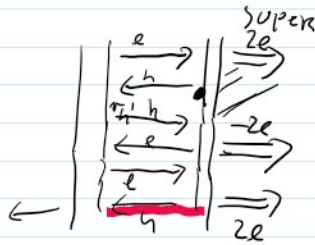 super
e 2e
h
h
e 2e
e
h 2e